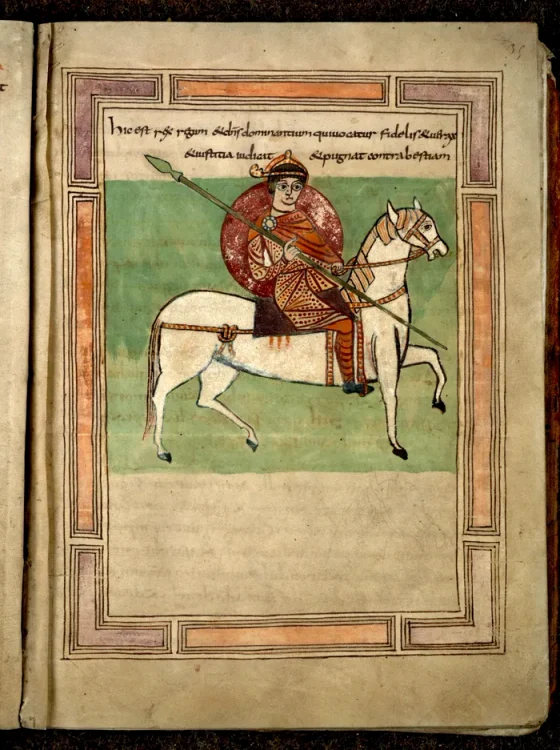 hic est rex regum & dns dominantium qui uocatur fidelis & uerax
& iustitia iudicat & pugnat contra bestiam